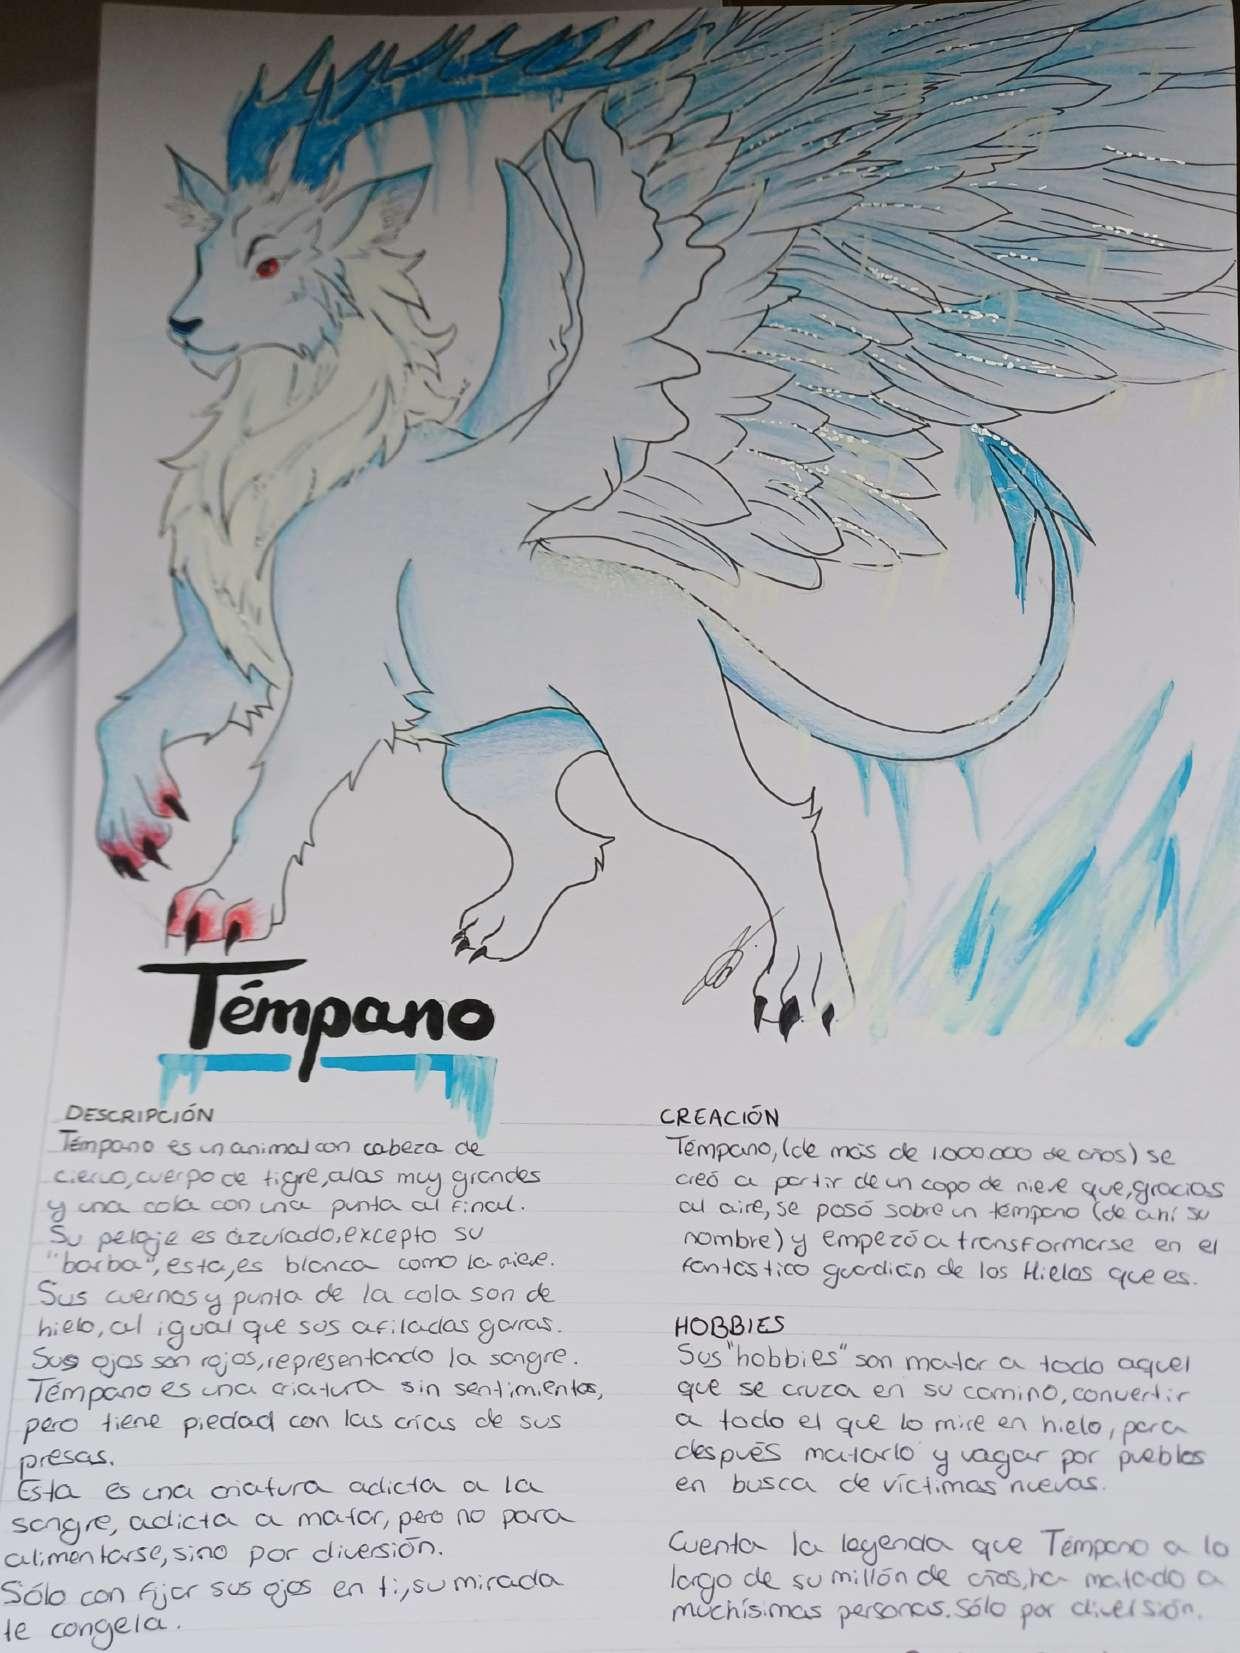 Témpano
DESCRIPCIÓN
Témpano es un animal con cabeza de
ciervo, cuerpo de tigre, alas muy grandes
y una cola con una punta al final.
Su pelaje es azulado, excepto su
"barba", esta, es blanca como la nieve.
Sus cuernos y punta de la cola son de
hielo, al igual que sus afiladas garras.
Sus ojos son rojos, representando la sangre.
Témpano es una criatura sin sentimientos,
pero tiene piedad con las crías de sus
presas.
Esta es una criatura adicta a la
sangre, adicta a matar, pero no para
alimentarse, sino por diversión.
Sólo con fijar sus ojos en ti, su mirada
te congela.
CREACIÓN
Témpano, (de más de 1.000.000 de años) se
creó a partir de un copo de nieve que, gracias
al aire, se posó sobre un témpano (de ahí su
nombre) y empezó a transformarse en el
fantástico guardián de los Hielos que es.
HOBBIES
Sus "hobbies" son matar a todo aquel
que se cruza en su camino, convertir
a todo el que lo mire en hielo, para
después matarlo y vagar por pueblos
en busca de víctimas nuevas.
Cuenta la leyenda que Témpano a lo
largo de su millón de años, ha matado a
muchísimas personas. Sólo por diversión.